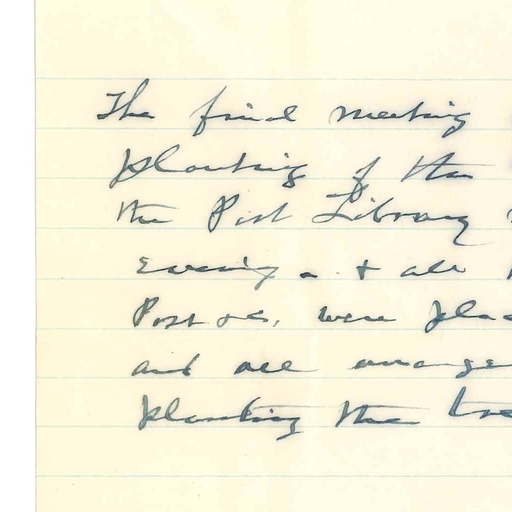 The final meeting
planting of the
the Post Library
evening & all
Post were plac
and all arrange
planting the tre